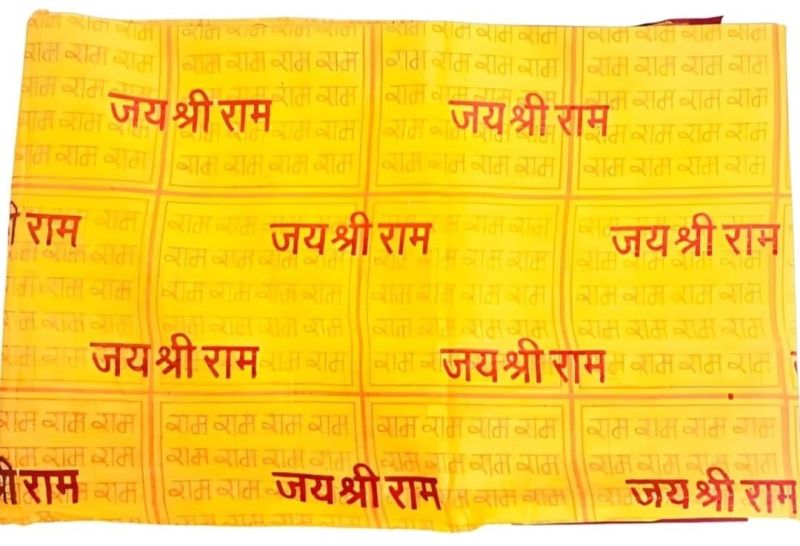 राम राम राम राम राम राम राम राम राम राम राम राम राम राम राम
राम राम राम राम राम राम राम राम राम राम राम राम राम राम राम
राम राम राम राम राम राम राम राम राम राम राम राम राम राम
जय श्री राम जय श्री राम
राम राम राम राम राम राम राम राम राम राम राम
राम राम राम राम राम राम राम राम राम राम राम राम राम राम राम
राम राम राम राम राम राम राम राम
राम जय श्री राम जय श्री राम
राम राम राम राम राम राम राम राम
राम राम राम राम राम राम राम राम राम राम राम राम राम राम राम
राम राम राम राम राम राम राम राम राम राम राम राम राम राम राम
जय श्री राम जय श्री राम
राम राम राम राम राम राम राम
राम राम राम राम राम राम राम राम राम राम राम राम राम राम राम
राम राम राम राम राम राम राम राम राम राम राम राम राम राम राम
राम जय श्री राम जय श्री राम